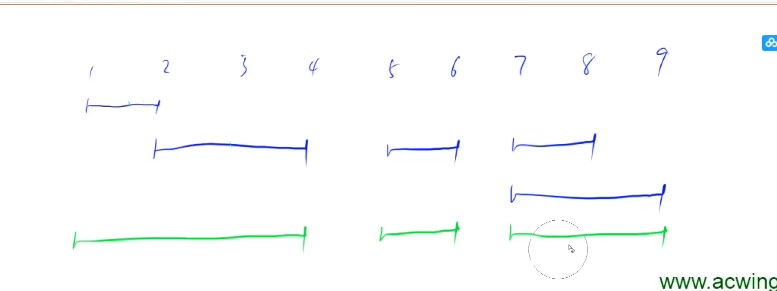 1 2 3 4 5 6 7 8 9
www.acwing